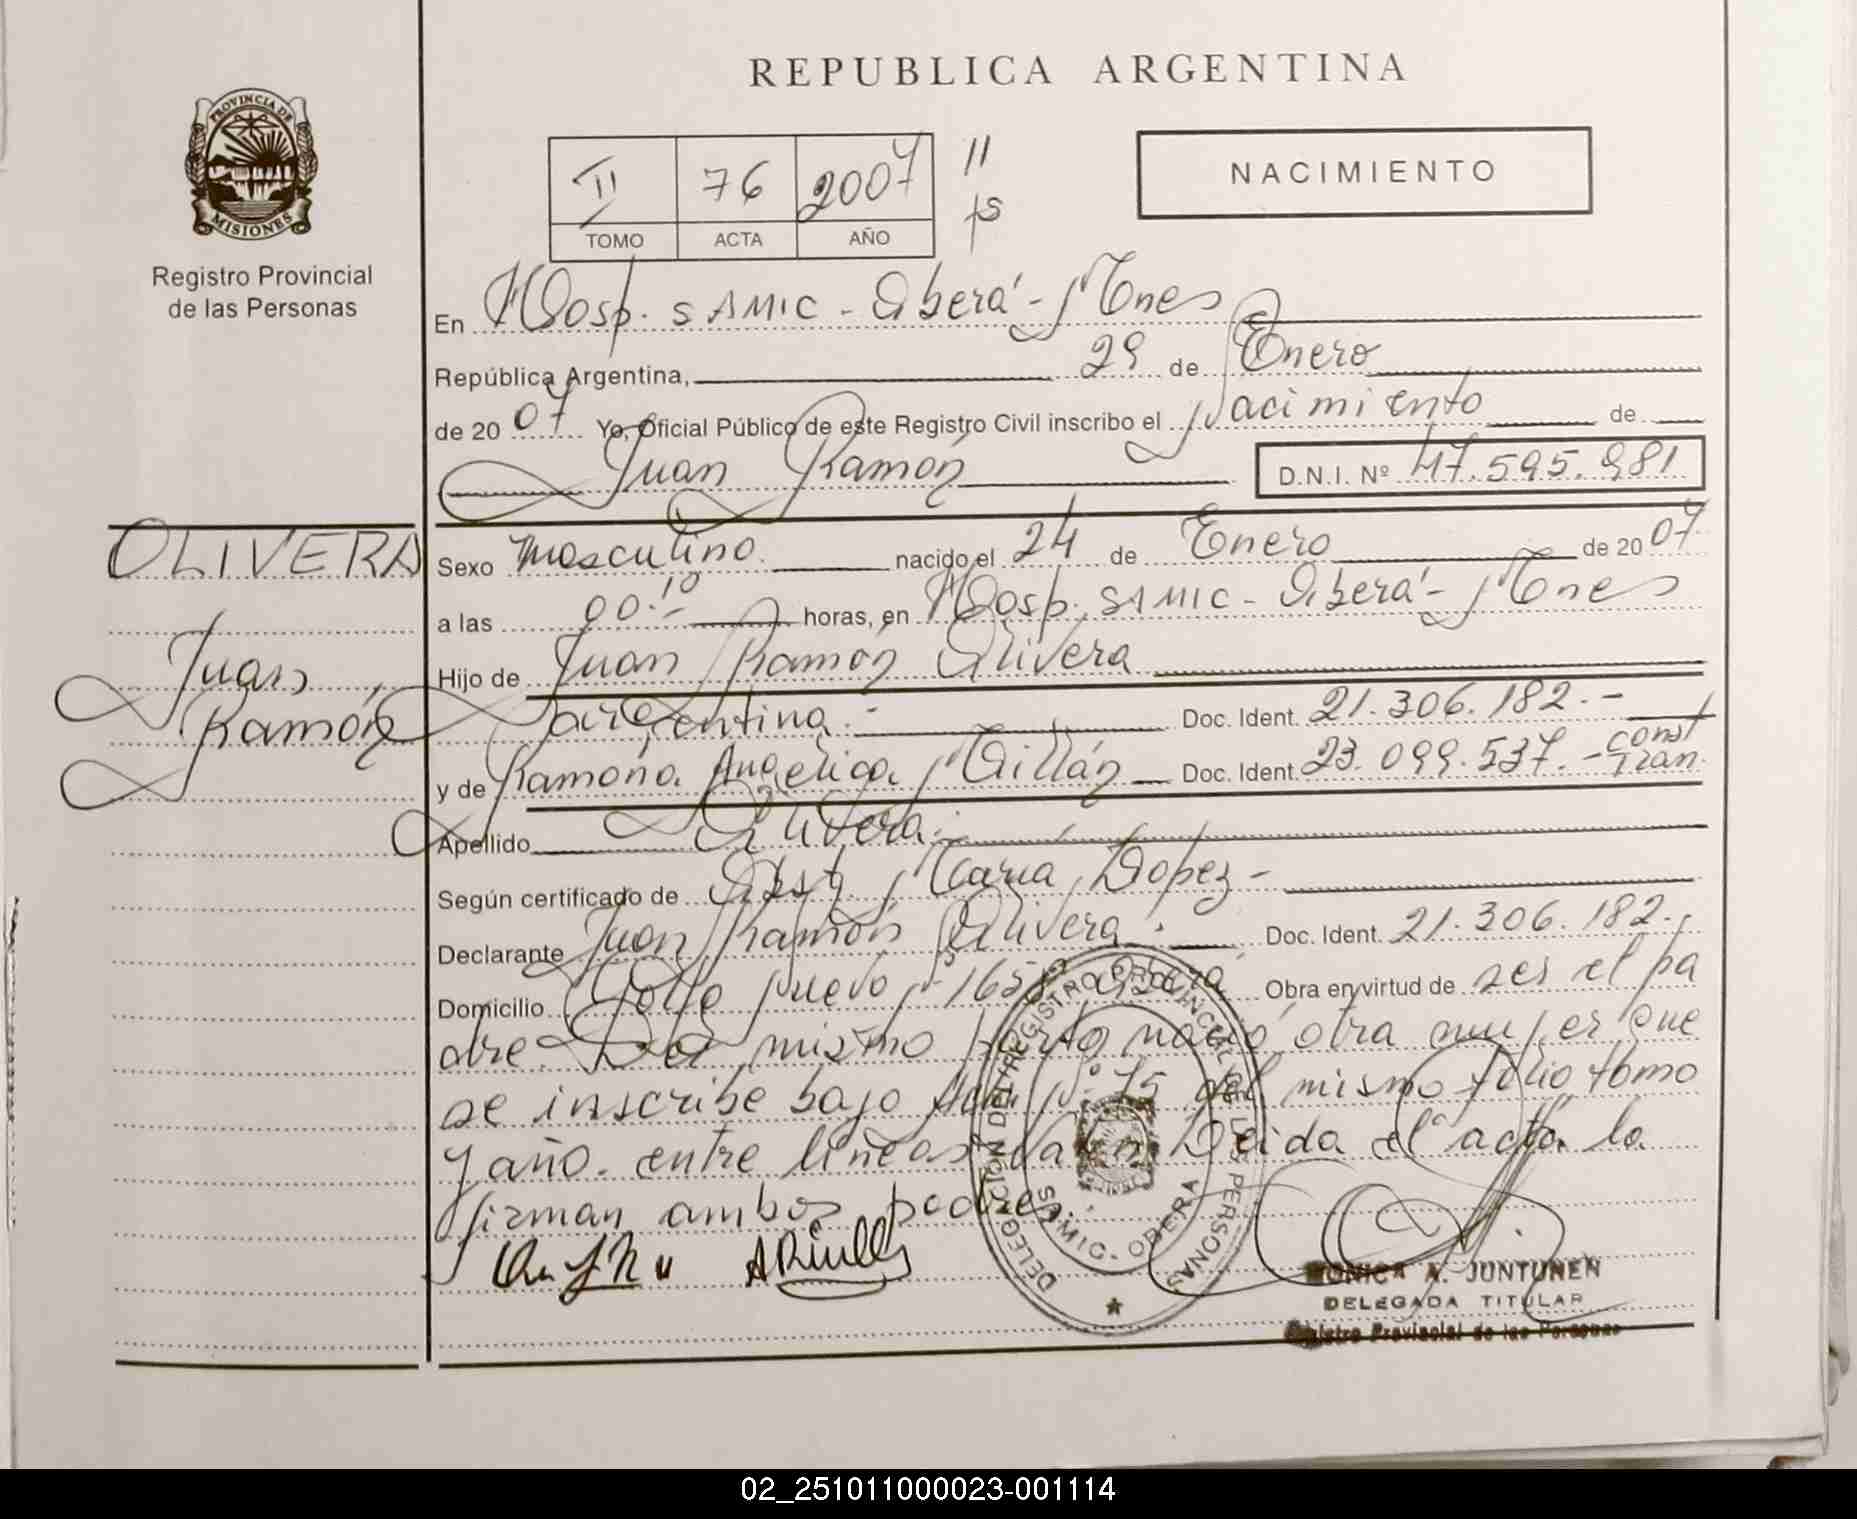 REPUBLICA ARGENTINA
PROVINCIA DE MISIONES
Registro Provincial
de las Personas
II 76 2007 11
TOMO ACTA AÑO
NACIMIENTO
En Hosp. SAMIC - Oberá - Mnes
República Argentina, 29 de Enero
de 2007 Yo, Oficial Público de este Registro Civil inscribo el Nacimiento de
Juan Ramón D.N.I. Nº 47.595.981
OLIVERA
Juan
Ramón
Sexo masculino. nacido el 24 de Enero de 2007
a las 00:10 horas, en Hosp. SAMIC - Oberá - Mnes
Hijo de Juan Ramón Olivera
argentina.- Doc. Ident. 21.306.182.-
y de Ramona Angelica Millán Doc. Ident. 23.099.537.- const
Apellido Olivera.-
Según certificado de Obst. María Lopez -
Declarante Juan Ramón Olivera. Doc. Ident. 21.306.182.
Domicilio Yerbal Nuevo Nº 1658 Oberá Obra en virtud de ser el pa
dre. Del mismo parto nació otra mujer que
se inscribe bajo Acta Nº 75 del mismo folio tomo
y año. entre líneas Valen Leida el acta la
firman ambos padres.
DELEGACION DEL REGISTRO PROVINCIAL DE LAS PERSONAS
SAMIC - OBERA
MONICA A. JUNTUNEN
DELEGADA TITULAR
Registro Provincial de las Personas
02_251011000023-001114